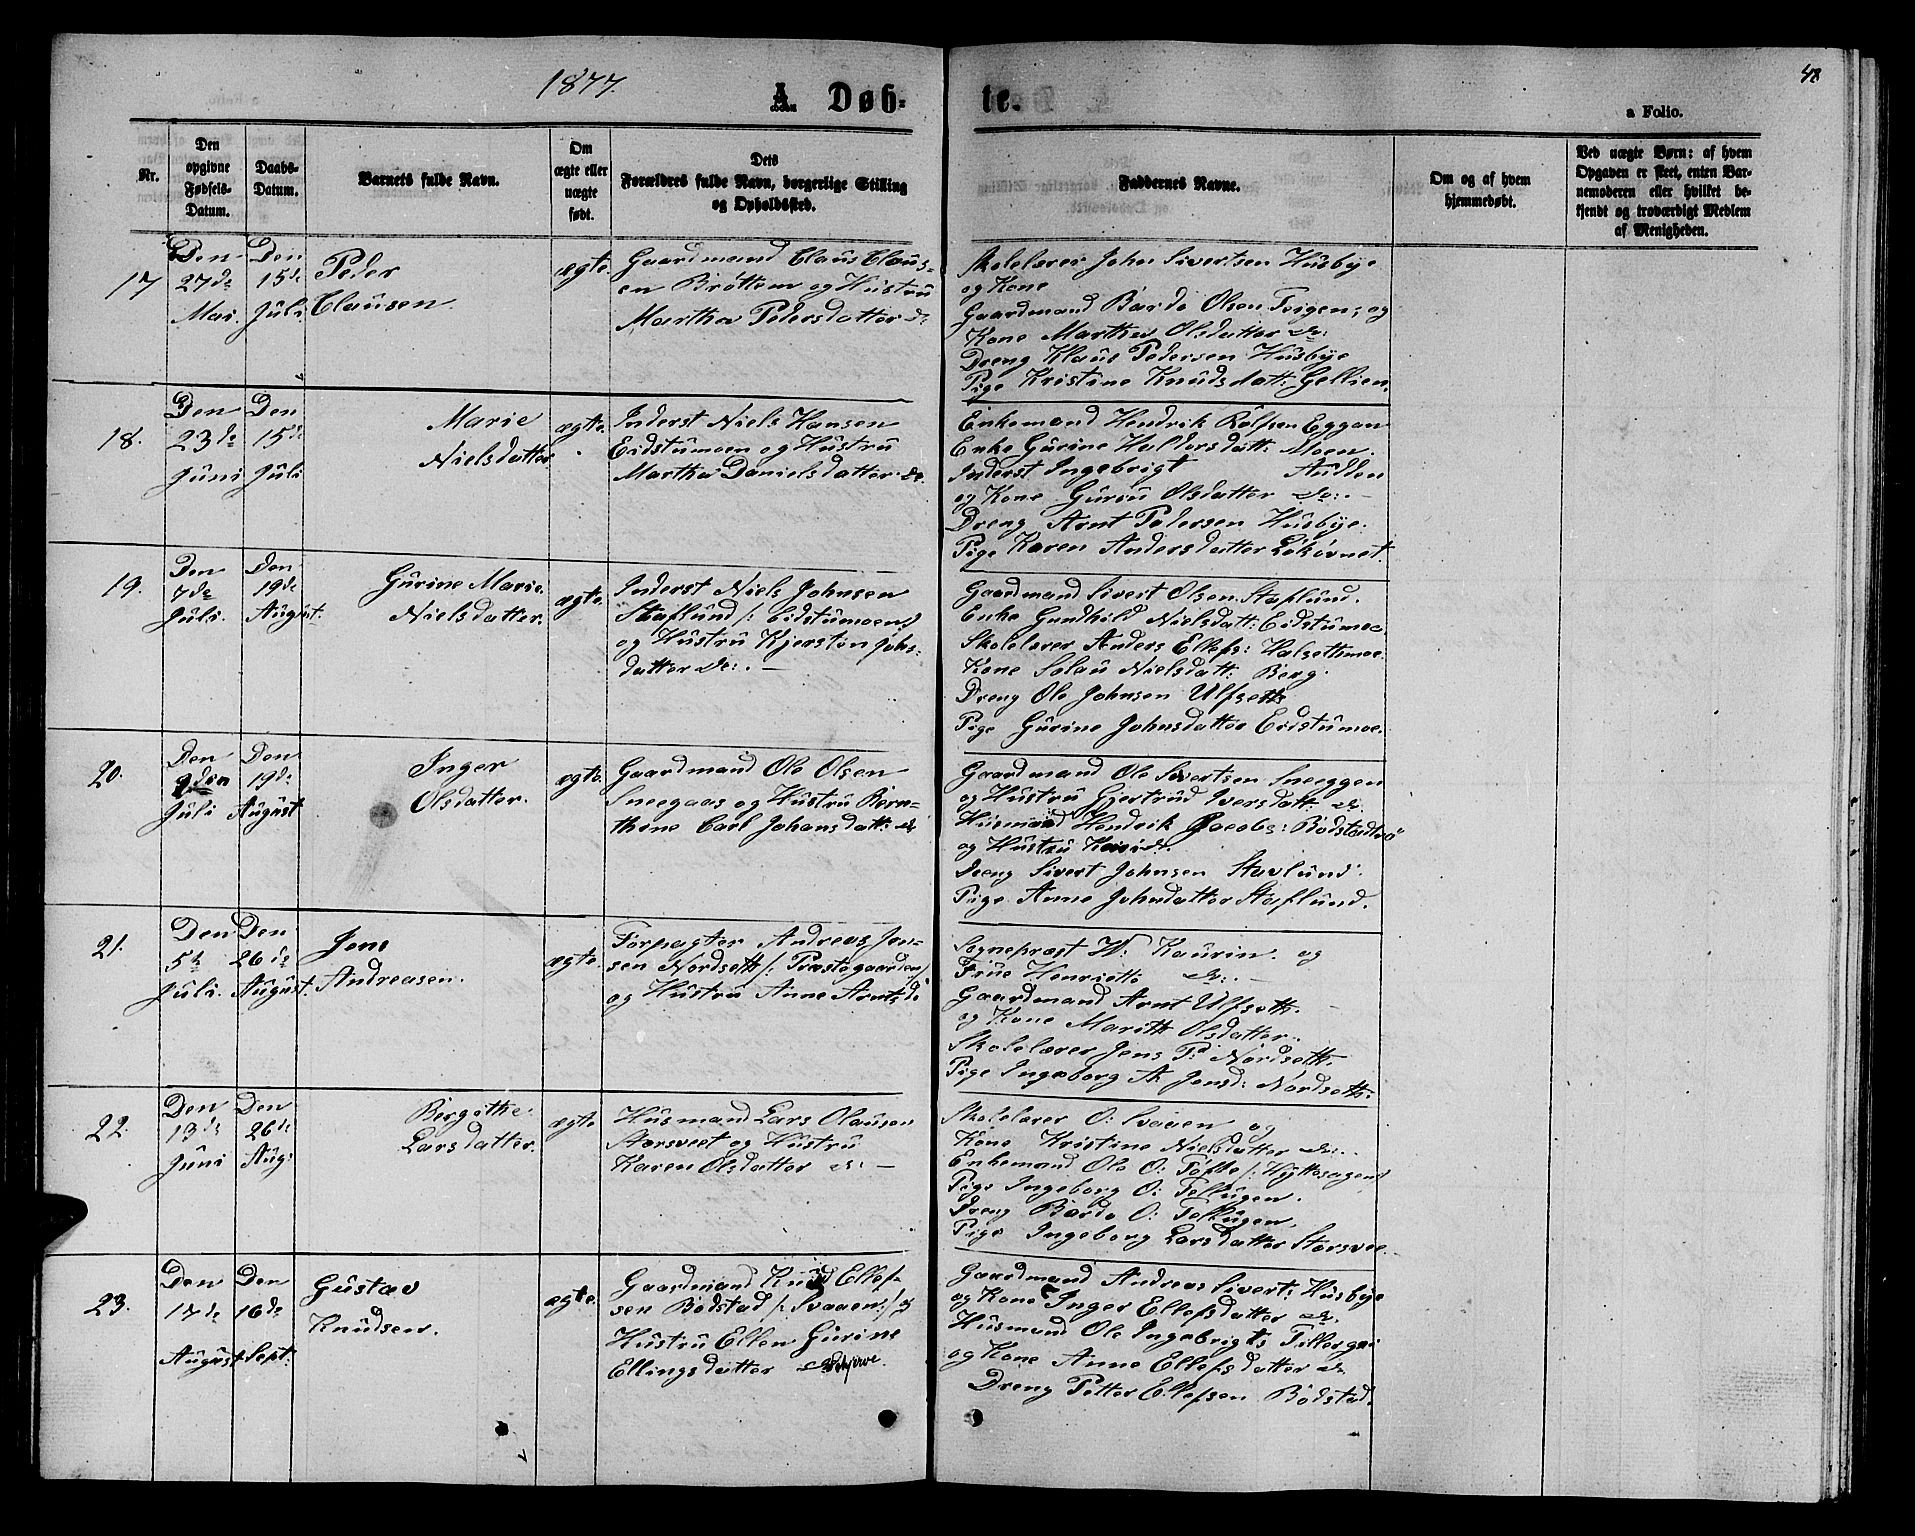 1877.
A. Døb-
te.
48
a Folio.
Nr.
Den
opgivne
Fødsels-
Datum.
Daabs-
Datum.
Barnets fulde Navn.
Om
ægte eller
uægte
født.
Dets
Forældres fulde Navn, borgerlige Stilling
og Opholdssted.
Faddernes Navne.
Om og af hvem
hjemmedøbt.
Ved uægte Børn: af hvem
Opgaven er skeet, enten Bar-
nemoderen eller hvilket be-
kjendt og troværdigt Medlem
af Menigheden.
17
Den
27de
Mai.
Den
15de
Juli.
Peder
Clausen.
ægte
Gaardmand Claus Claus-
en Brøttem og Hustru
Martha Pedersdatter do
Skolelærer John Sivertsen Husbye
og Kone
Gaardmand Bardo Olsen Teigen; og
Kone Martha Olsdatter do:
Dreng Klaus Pedersen Husbye
Pige Kristine Knudsdatt: Gellien.
18.
Den
23de
Juni
Den
15de
Juli
Marie
Nielsdatter
ægte.
Inderst Niels Hansen
Eidstumoen og Hustru
Martha Danielsdatter do.
Enkemand Hendrik Rolfsen Eggan
Enke Gurine Haldorsdatt: Moen.
Inderst Ingebrigt Aulden
og Kone Guru Olsdatter do:
Dreng Arnt Pedersen Husbye.
Pige Karen Andersdatter Løkøvnet.
19.
Den
7de
Juli.
Den
19de
August.
Gurine Marie.
Nielsdatter.
ægte.
Inderst Niels Johnsen
Staflund /: Eidstumoen)
og Hustru Kjersten Johs-
datter do:.
Gaardmand Sivert Olsen Staflund.
Enke Gundhild Nielsdatt: Eidstumoe
Skolelærer Anders Ellefs: Halsetsmoe.
Kone Solau Nielsdatt: Berg.
Dreng Ole Johnsen Ulfseth
Pige Gurine Johnsdatter Eidstumoe.
20.
Den
9den
Juli
Den
19de
August
Inger
Olsdatter.
ægte.
Gaardmand Ole Olsen
Sneegaas og Hustru Bern-
thine Carl Johansdatt: do
Gaardmand Ole Sivertsen Sneeggen
og Hustru Gjertrud Iversdatt: do.
Husmand Hendrik Jacobs: Bodstadhrø
og Hustru Kari do.
Dreng Sivert Johnsen Stavlund.
Pige Anne Johnsdatter Staflund.
21.
Den
5te
Juli.
Den
26de
August.
Jens
Andreasen.
ægte.
Forpagter Andreas Jen-
sen Nordseth /: Præstegaarden/
og Hustru Anne Arntsd:
Sognepræst W. Kaurin. og
Frue Henriette do:.
Gaardmand Arnt Ulfseth.
og Kone Marith Olsdatter.
Skolelærer Jens P: Nordseth.
Pige Ingeborg A. Jensd: Nordseth:
22.
Den
13de
Juni
Den
26de
Aug:
Bergithe
Larsdatter.
ægte
Husmand Lars Olausen
Storsveet og Hustru
Karen Olsdatter do:
Skolelærer O: Svaaen og
Kone Kristine Nielsdatter do:.
Enkemand Ole O: Tofte /: Hyttesagen)
Pige Ingeborg O: Tellugen.
Dreng Bardo O: Tellugen.
Pige Ingeborg Larsdatter Storsvee
23.
Den
17de
August
Den
16de
Sept:
Gustav
Knudsen.
ægte.
Gaardmand Knud Ellef-
sen Bodstad /: Svaaen:/ og
Hustru Ellen Gurine
Ellingsdatter
Gaardmand Andreas Siverts: Husbye
og Kone Inger Ellefsdatter do.
Husmand Ole Ingebrigts Tillergjei
og Kone Anne Ellefsdatter do
Dreng Petter Ellefsen Bodstad.